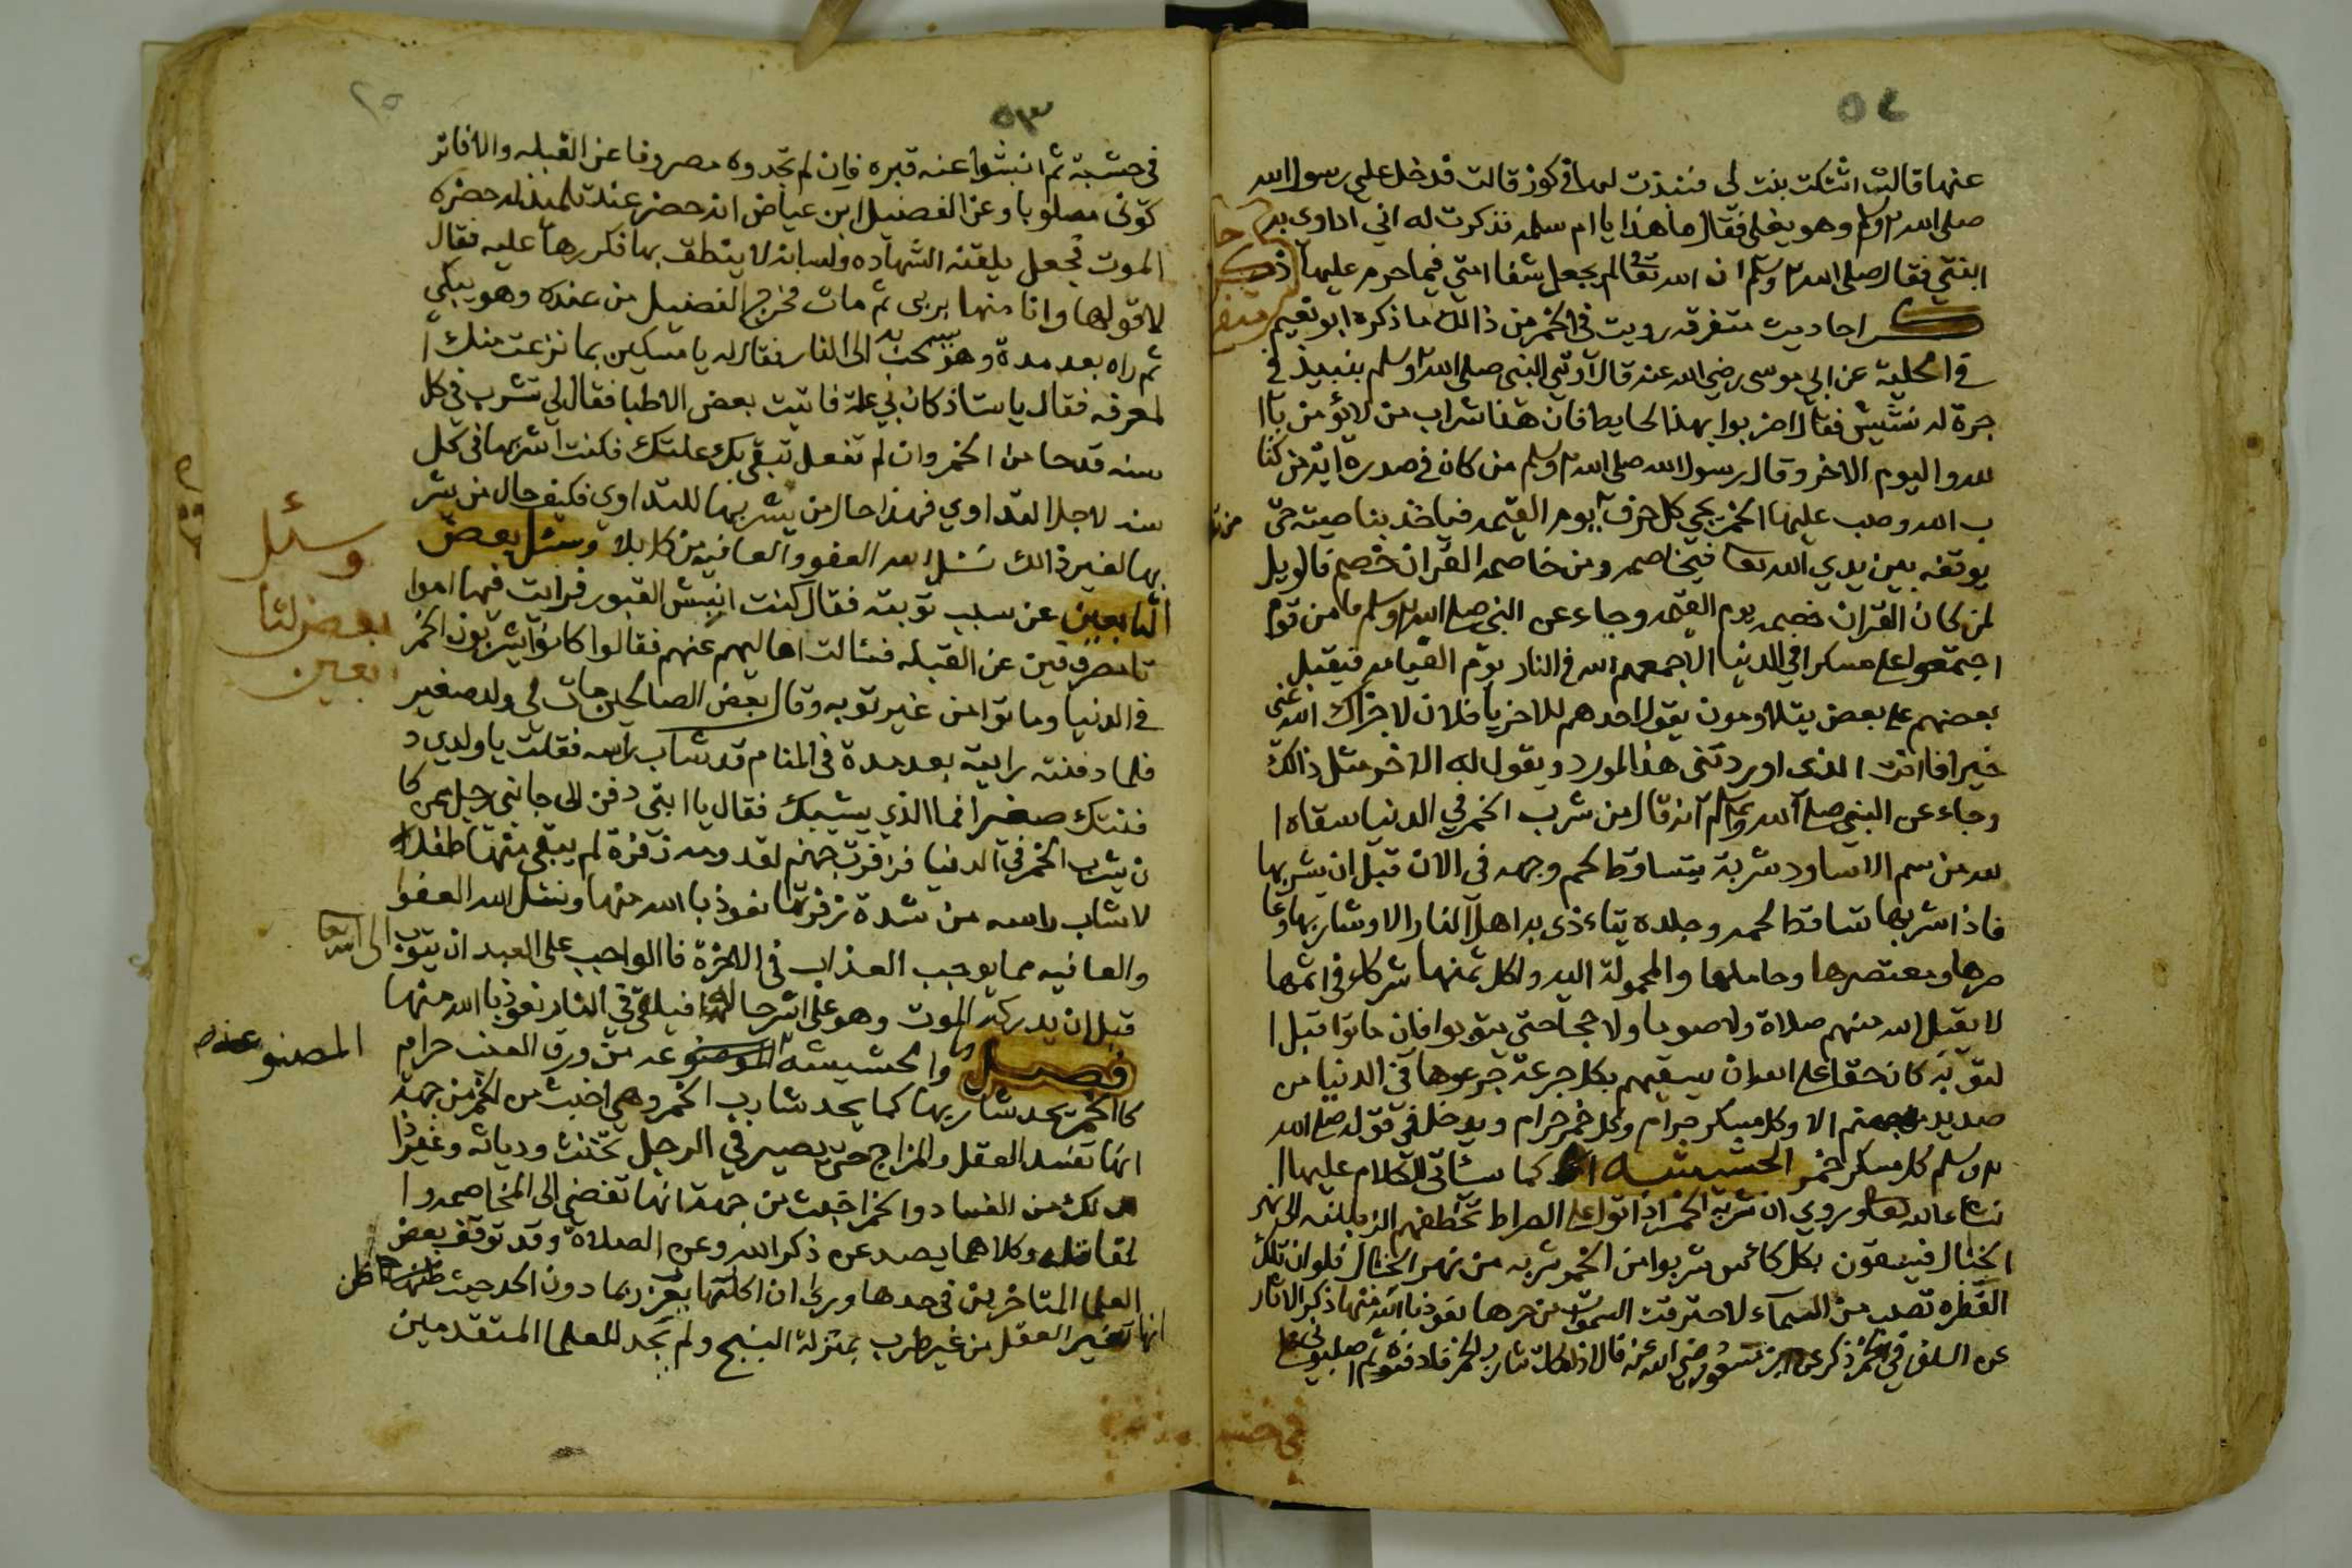 ٥٤
عنها قالت اشتكت بنت لي فنبذت لها في كوز قالت فدخل علي رسول الله
صلى الله وسلم وهو يغلي فقال ما هذا يا ام سلمه فذكرت له اني اداوي به
ابنتي فقال صلى الله وسلم ان الله تعالى لم يجعل شفا امتي فيما حرم عليها ذكر
احاديث متفرقه رويت في الخمر من ذالك ما ذكره ابو نعيم
في الحلية عن ابي موسى رضي الله عنه قال اوتي النبي صلى الله وسلم بنبيذ في
جرة له نشيش فقال اضربوا بهذا الحايط فان هذا شراب من لا يؤمن باا
لله واليوم الاخر وقال رسول الله صلى الله وسلم من كان في صدره اية من كتا
ب الله وصب عليها الخمر يجي كل حرف يوم القيمه فياخذ بناصيته حتى
يوقفه بين يدي الله تعا فيخاصمه ومن خاصمه القران خصم فالويل
لمن كان القران خصمه يوم القيمه وجاء عن النبي صلى الله وسلم ما من قوم
اجتمعوا على مسكر في الدنيا الا جمعهم الله في النار يوم القيامه فيقبل
بعضهم على بعض يتلاومون يقول احدهم للاخر يا فلان لا جزاك الله عني
خيرا فاانت الذي اوردتني هذا المورد ويقول له الاخر مثل ذالك
وجاء عن النبي صلى الله وسلم انه قال من شرب الخمر في الدنيا سقاه ا
لله من سم الاساود شربة يتساقط لحم وجهه في الانا قبل ان يشربها
فاذا شربها تساقط لحمه وجلده يتاءذى به اهل النار الا وشاربها وعا
صرها ومعتصرها وحاملها والمحمولة اليه واكل ثمنها شركاء في اثمها
لا يقبل الله منهم صلاة ولا صوما ولا حجا حتى يتوبوا فان ماتوا قبل ا
لتوبه كان حقا على الله ان يسقيهم بكل جرعة جرعوها في الدنيا من
صديد جهنم الا وكل مسكر حرام وكل خمر حرام ويدخل في قوله صلى الله
وسلم كل مسكر خمر الحشيشه كما سئاتي الكلام عليها ا
نشاء الله تعا وروي ان شربة الخمر اذا اتوا على الصراط تخطفهم الزبانيه الى نهر
الخبال فيسقون بكل كائس شربوا من الخمر شربه من نهر الخبال فلو ان تلك
القطره تصب من السماء لاحترقت السموات من حرها نعوذ باالله منها ذكر الاثار
عن السلف في الخمر ذكر عن ابن مسعود رضي الله عنه قال اذا مات شارب الخمر فادفنوه ثم اصلبوني على
٥٣
٢٥
في خشبة ثم انبشوا عنه قبره فان لم تجدوه مصروفا عن القبله والا فاتر
كوني مصلوبا وعن الفضيل ابن عياض انه حضر عند تلميذ له حضره
الموت فجعل يلقنه الشهاده ولسانه لا ينطق بها فكررها عليه فقال
لا قولها وانا منها بري ثم مات فخرج الفضيل من عنده وهو يبكي
ثم راه بعد مدة وهو يسحب به الى النار فقال له يا مسكين بما نزعت منك ا
لمعرفه فقال ياستاذ كان بي علة فاتيت بعض الاطبا فقال لي تشرب في كل
سنه قدحا من الخمر وان لم تفعل تبقى بك علتك فكنت اشربها في كل
سنه لاجل التداوي فهذا حال من يشربها للتداوي فكيف حال من يشر
بها لغير ذالك نسئل الله العفو والعافيه من كل بلا وسئل بعض
التابعين عن سبب توبته فقال كنت انبش القبور فرايت فيها اموا
تا مصروفين عن القبله فسئالت اهاليهم عنهم فقالوا كانوا يشربون الخمر
في الدنيا وماتوا من غير توبه وقال بعض الصالحين مات لي ولد صغير
فلما دفنته رايته بعد مدة في المنام قد شاب راسه فقلت يا ولدي د
فنتك صغيرا فما الذي يشيبك فقال يا ابتي دفن الى جانبي رجل ممن كا
ن يشرب الخمر في الدنيا فزفرت جهنم لقدومه زفرة لم يبقى منها طفلا
لا شاب راسه من شدة زفرتها نعوذ باالله منها ونسئل الله العفوا
والعافيه مما يوجب العذاب في الاخرة فاالواجب على العبد ان يتوب الى الله تعا
قبل ان يدركه الموت وهو على اشر حاله فيلقى في النار نعوذ باالله منها
فصل والحشيشه المصنوعه من ورق العنب حرام
كاالخمر يحد شاربها كما يحد شارب الخمر وهي اخبث من الخمر من جهة
انها تفسد العقل والمزاج حتى يصير في الرجل تخنث ودياثه وغير ذا
لك من الفساد والخمر اخبث من جهة انها تفضي الى المخاصمه وا
لمقاتله وكلاهما يصد عن ذكر الله وعن الصلاة وقد توقف بعض
العلما المتاخرين في حدها وراى ان اكلها يعزر بما دون الحد حيث ظن
انها تغير العقل من غير طرب بمنزلة البنج ولم نجد للعلما المتقدمين
وسئل
بعض التا
بعين
المصنوعه صح